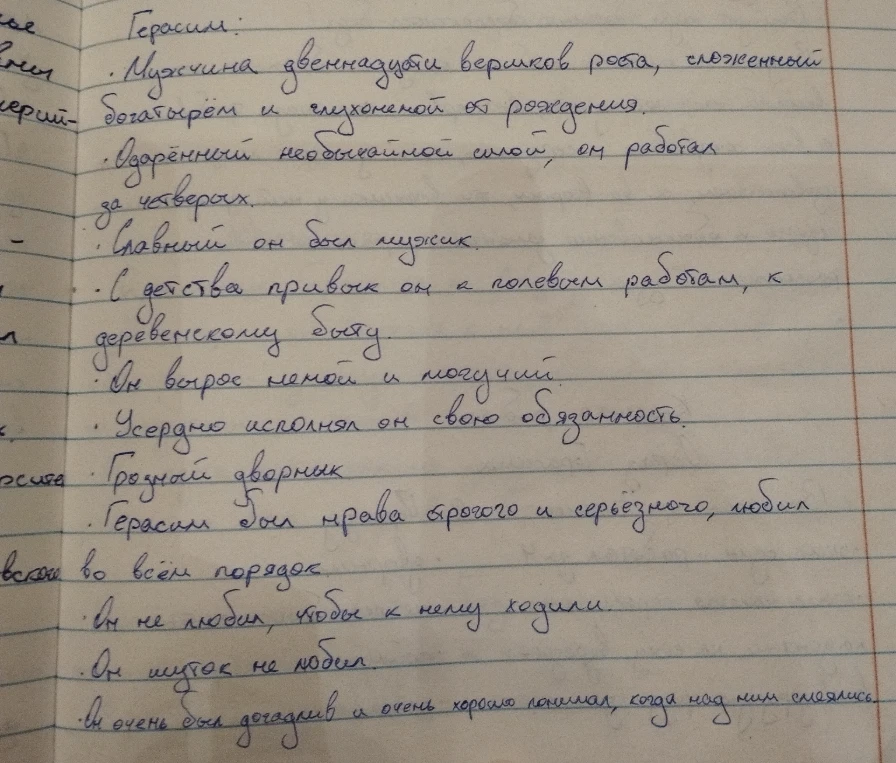 Герасим:
· Мужчина двеннадцати вершков роста, сложенный
богатырём и глухонемой от рождения.
· Одарённый необычайной силой, он работал
за четверых.
· Славный он был мужик.
· С детства привык он к полевым работам, к
деревенскому быту.
· Он вырос немой и могучий.
· Усердно исполнял он свою обязанность.
· Грозный дворник
· Герасим был нрава строгого и серьёзного, любил
во всём порядок.
· Он не любил, чтобы к нему ходили.
· Он шуток не любил.
· Он очень был догадлив и очень хорошо понимал, когда над ним смеялись.